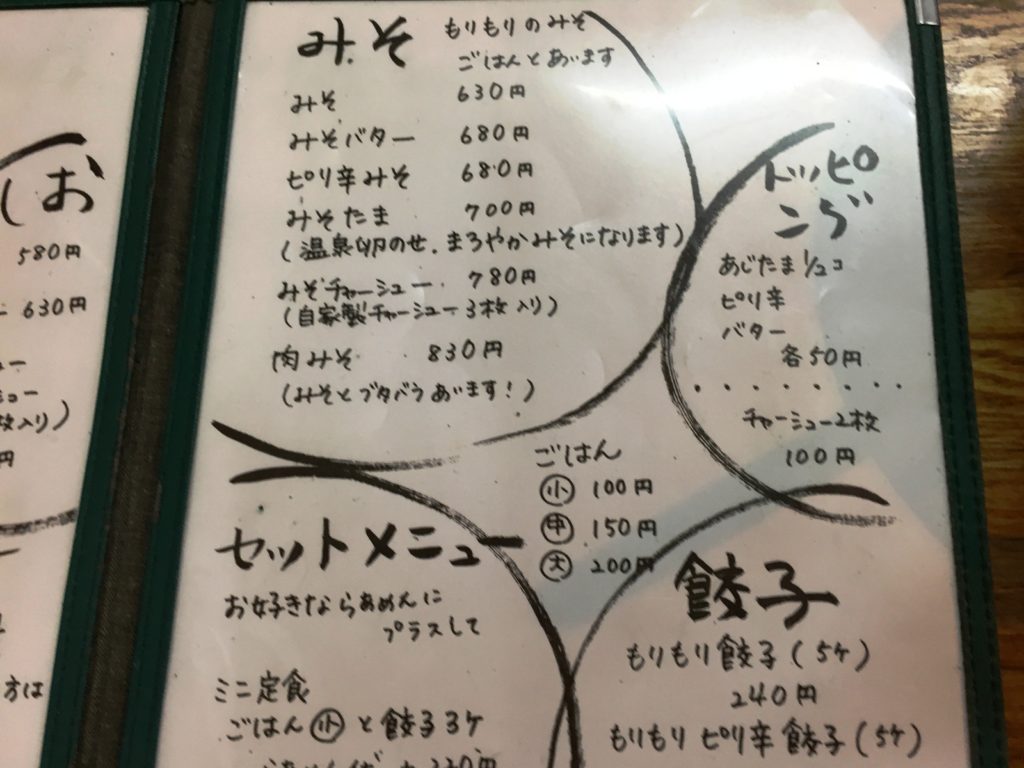 しお
580円
630円
ュー
枚入り)
円
方は
みそ
もりもりのみそ
ごはんとあいます
みそ 630円
みそバター 680円
ピリ辛みそ 680円
みそたま 700円
(温泉卵のせ.まろやかみそになります)
みそチャーシュー 780円
(自家製チャーシュー3枚入り)
肉みそ 830円
(みそとブタバラあいます!)
トッピ
ング
あじたま1/2コ
ピリ辛
バター
各50円
チャーシュー2枚
100円
ごはん
小 100円
中 150円
大 200円
セットメニュー
お好きならあめんに
プラスして
ミニ定食
ごはん小と餃子3ケ
餃子
もりもり餃子(5ケ)
240円
もりもりピリ辛餃子(5ケ)